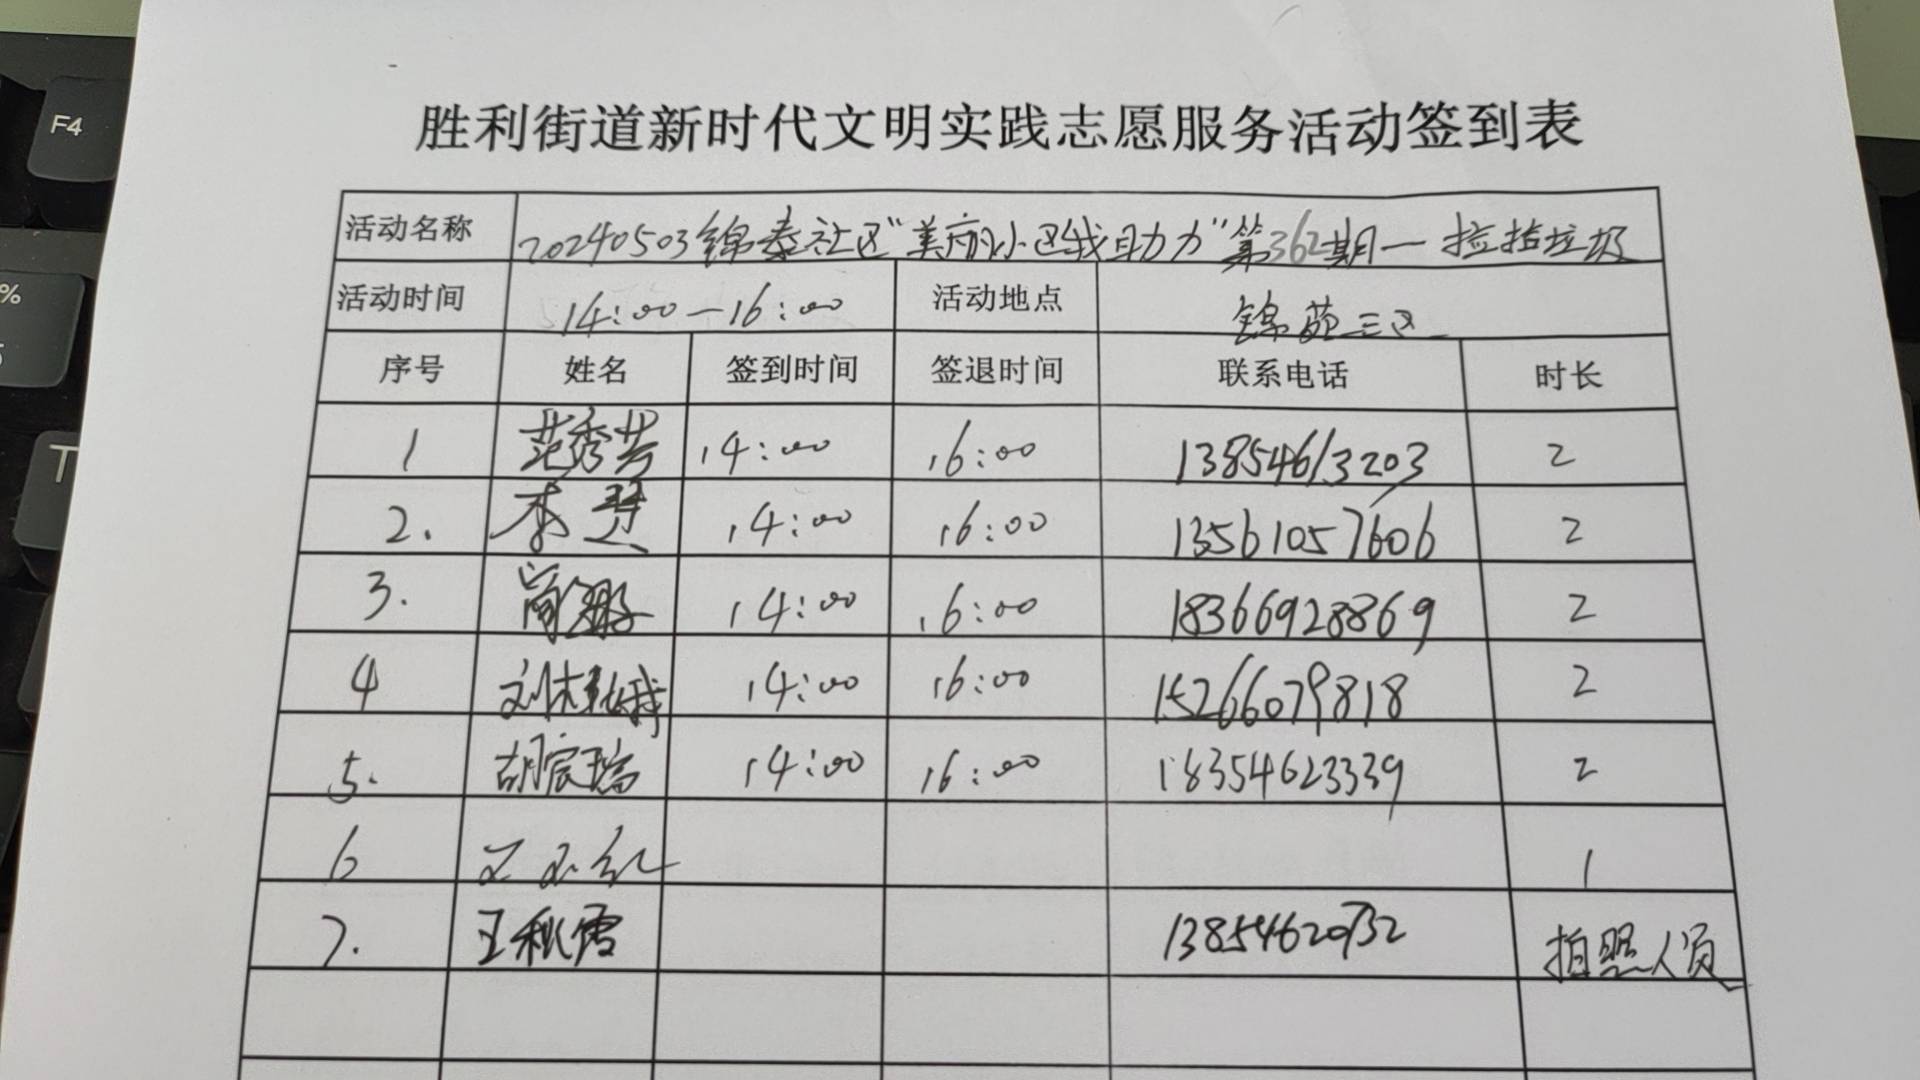 F4
%
5
T
胜利街道新时代文明实践志愿服务活动签到表
活动名称 20240503锦泰社区“美丽小区我助力”第362期一捡拾垃圾
活动时间 14:00—16:00 活动地点 锦苑三区
序号 姓名 签到时间 签退时间 联系电话 时长
1 范秀芸 14:00 16:00 13854613203 2
2. 李慧 14:00 16:00 13561057606 2
3. 14:00 16:00 18366928869 2
4 刘 14:00 16:00 15266079818 2
5. 胡宸瑞 14:00 16:00 18354623339 2
6 1
7. 王秋雪 13854620732 拍照人员